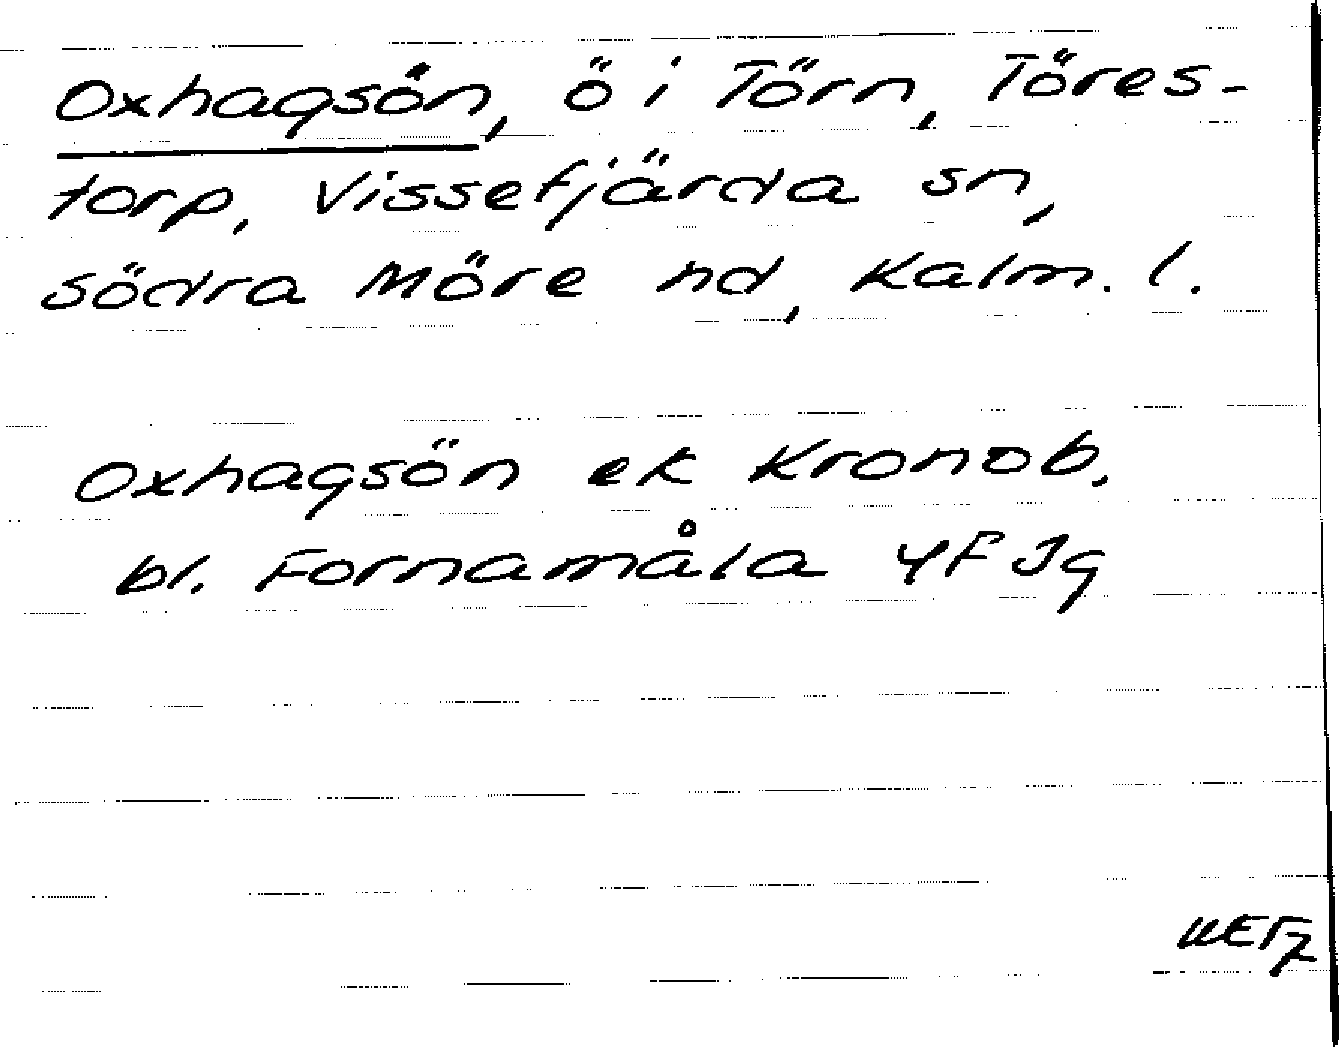 Oxhagsön, ö i Törn, Töres-
torp, Vissefjärda sn,
södra Möre hd, Kalm. l.
Oxhagsön ek Kronob.
bl. Fornamåla 4F Jg